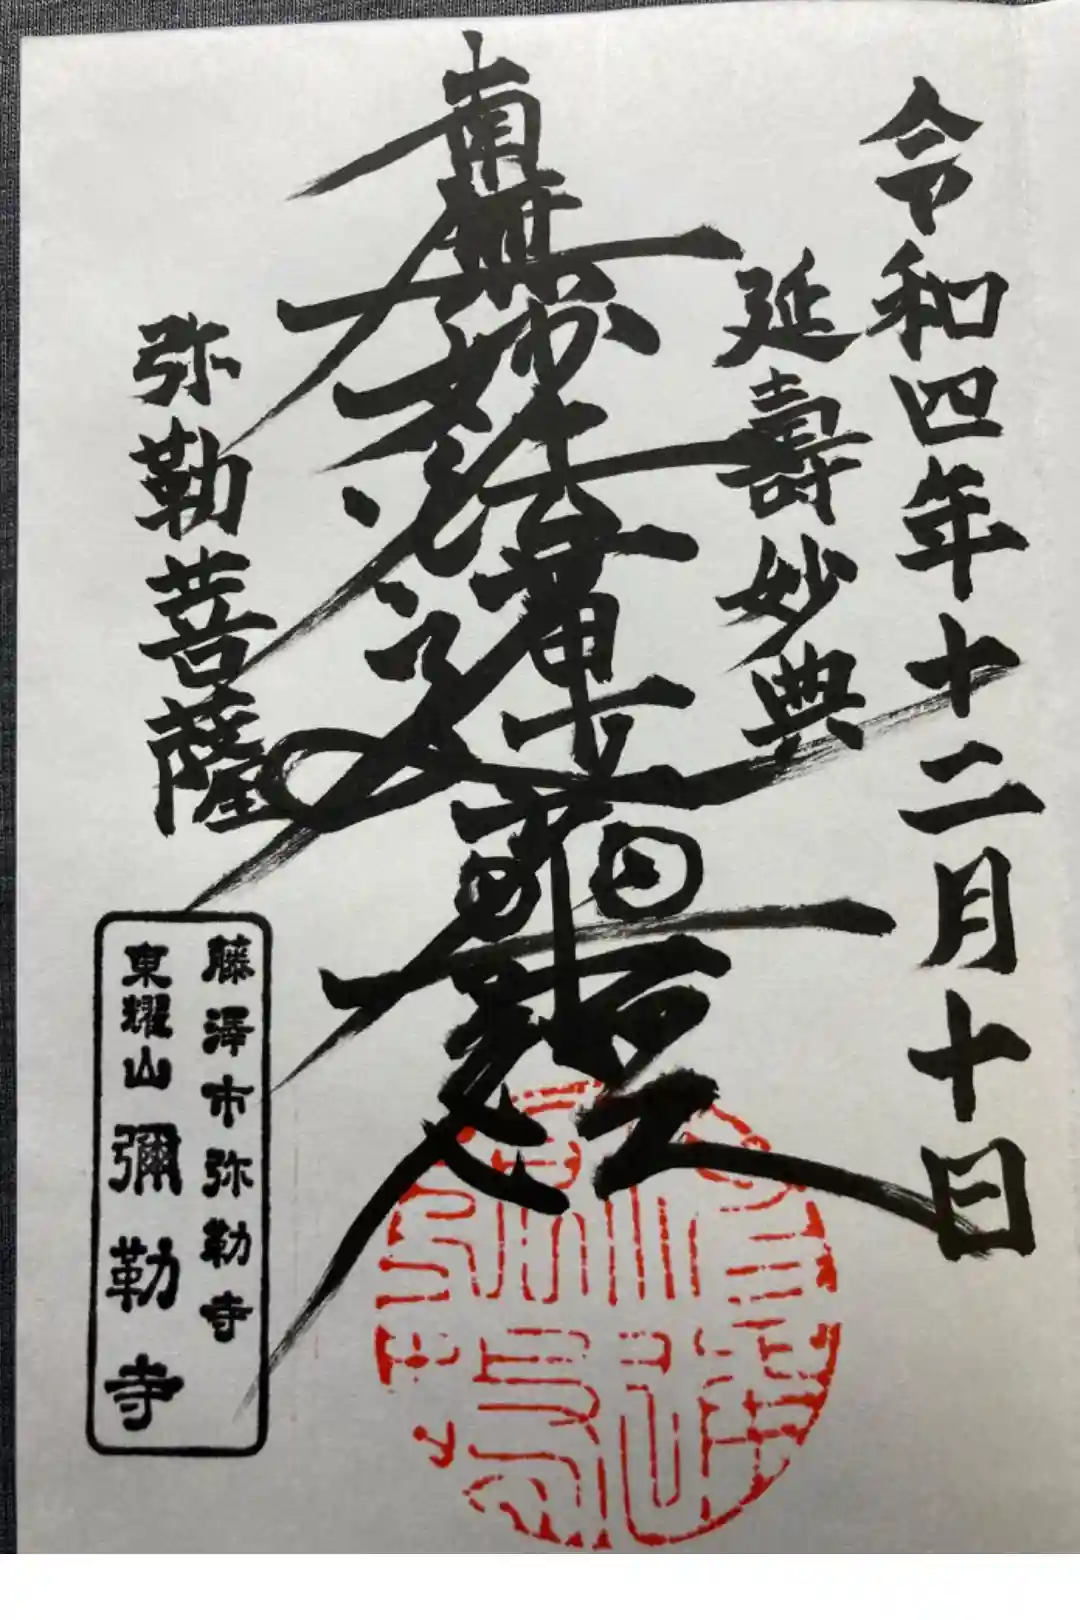 令和四年十二月十日
延壽妙典
南無妙法蓮華経
弥勒菩薩
藤澤市弥勒寺
東耀山彌勒寺